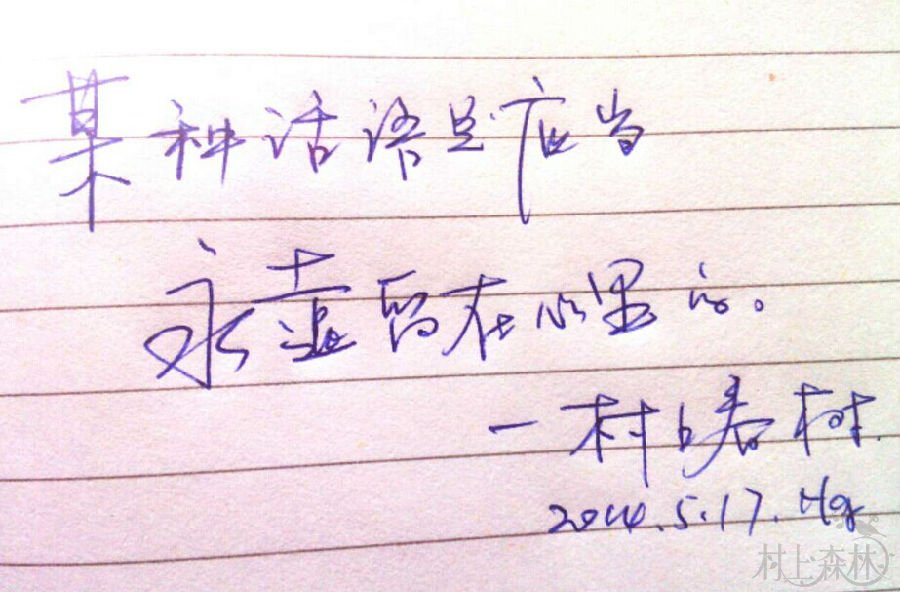 某种话语是应当
永远留在心里的。
—村上春树
2014.5.17.Hg
村上森林